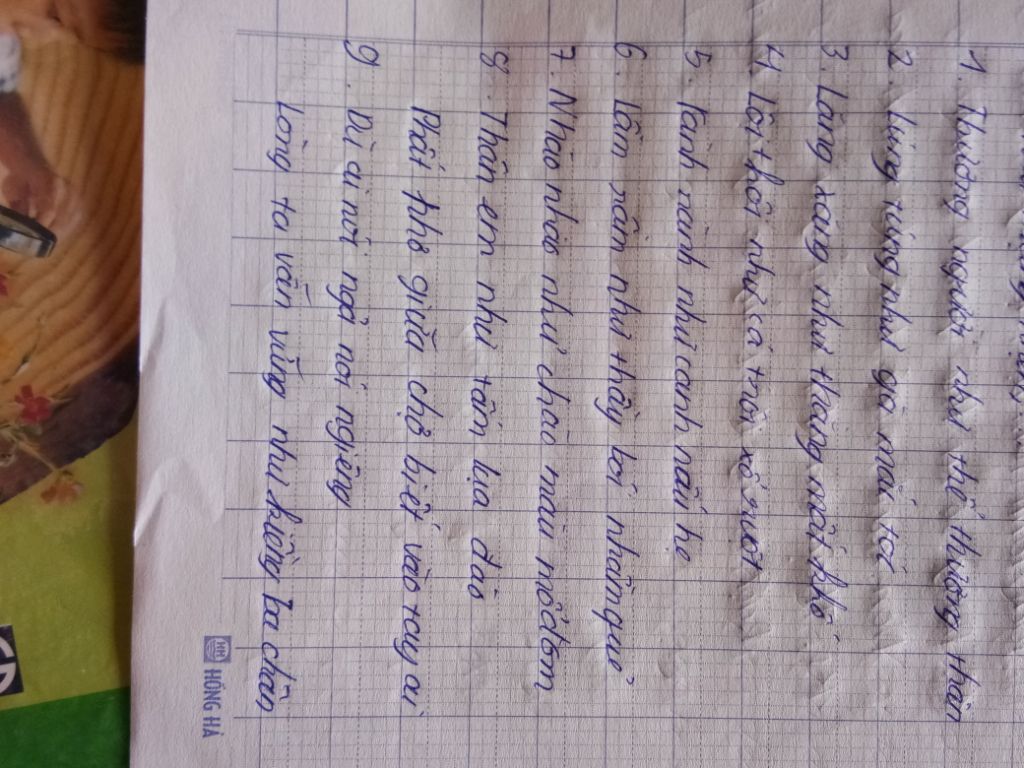 1. Thương người như thể thương thân
2. Lúng túng như gà mắc tóc
3. Lang xang như thằng mất khố
4. Lôi thôi như cá trôi xổ ruột
5. Rành rành như canh nấu hẹ
6. Lầm rầm như thầy bói nhầm quẻ
7. Nhào nhào như chào mào mổ dom
8. Thân em như tấm lụa đào
Phất phơ giữa chợ biết vào tay ai
9. Dù ai nói ngả nói nghiêng
Lòng ta vẫn vững như kiềng ba chân
HỒNG HÀ